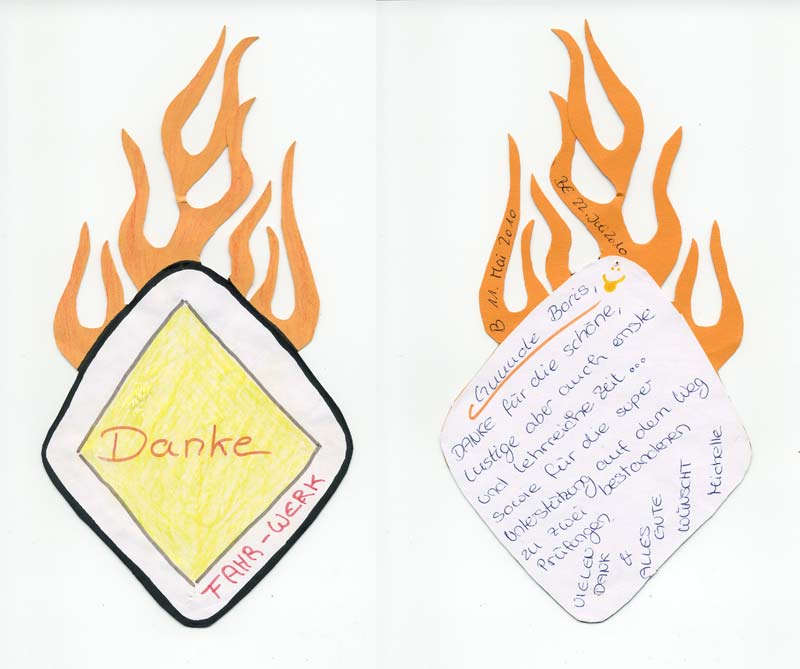 Danke
FAHR-WERK
B 11. Mai 2010
BE 22. Juli 2010
Guuude Boris,
DANKE für die schöne,
lustige aber auch ernste
und lehrreiche Zeit...
sowie für die super
Unterstützung auf dem Weg
zu zwei bestandenen
Prüfungen.
VIELEN
DANK
&
ALLES
GUTE
WÜNSCHT
Michelle